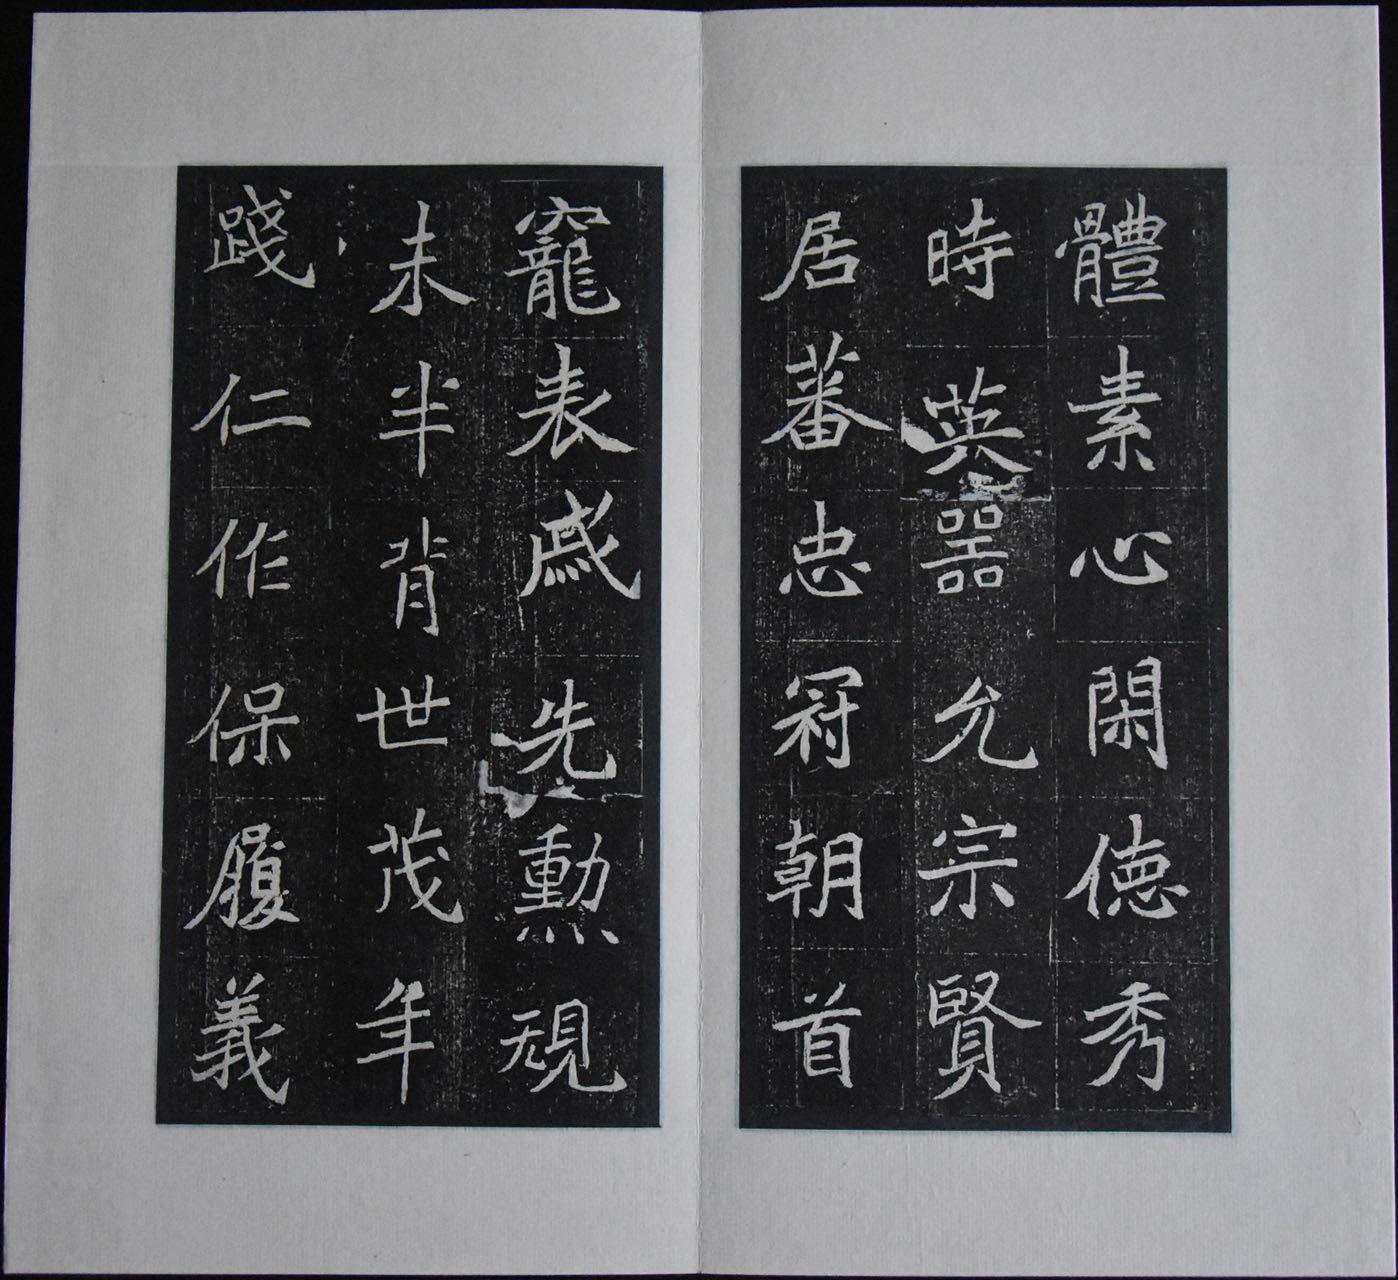 體素心閑徳秀
時英器允宗賢
居蕃忠冠朝首
寵表戚先勳覕
未半背世茂年
踐仁作保履義